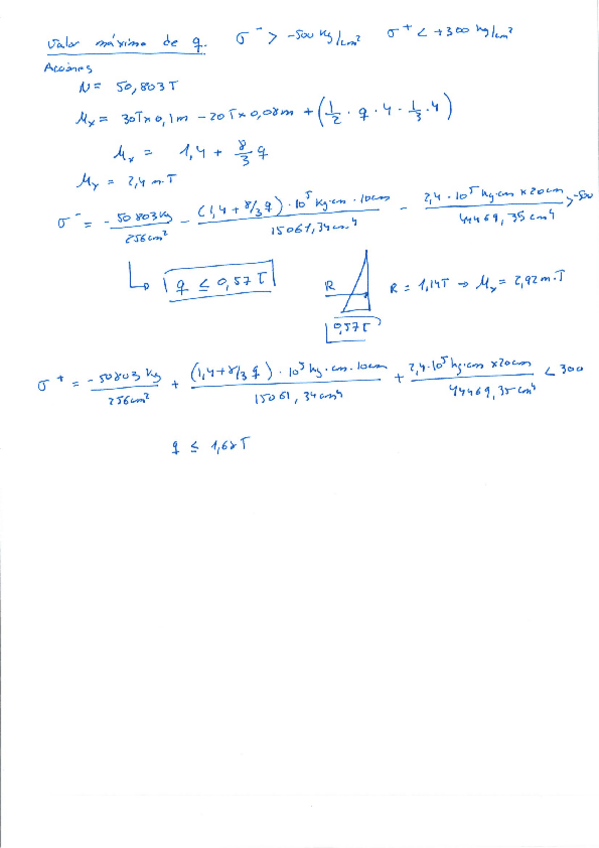 Valor máximo de q. σ⁻ > -500 kg/cm² σ⁺ < +300 kg/cm²
Acciones
N = 50,803T
Mx = 30T×0,1m - 20T×0,08m + (1/2 · q · 4 · 1/3 · 4)
Mx = 1,4 + 8/3 q
My = 2,4 m.T
σ⁻ = - 50803kg/256cm² - (1,4+8/3 q)·10⁵ kg·cm·10cm/15061,34cm⁴ - 2,4·10⁵ kg·cm×20cm/44469,35cm⁴ > -500
q ≤ 0,57T
R R = 1,14T → Mx = 2,92m.T
0,57T
σ⁺ = -50803 kg/256cm² + (1,4+8/3 q)·10⁵ kg·cm·10cm/15061,34cm⁴ + 2,4·10⁵ kg·cm×20cm/44469,35cm⁴ < 300
q ≤ 1,68T